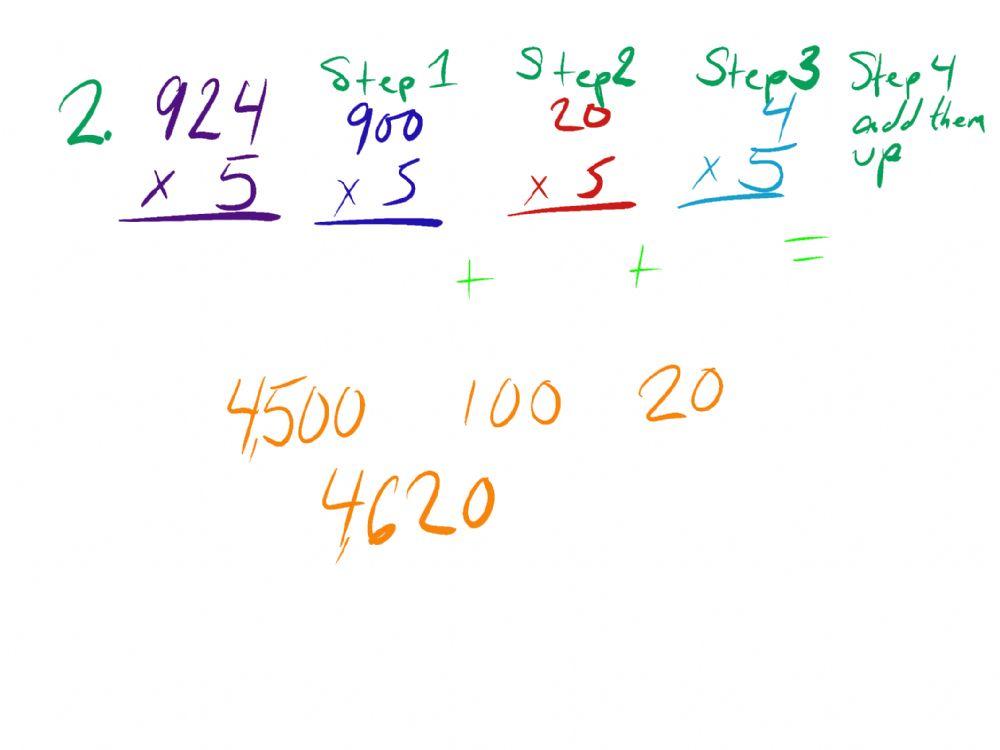 2. 924 Step 1 Step 2 Step 3 Step 4
900 20 4 add them
x 5 x 5 x 5 x 5 up
+ + =
4,500 100 20
4,620